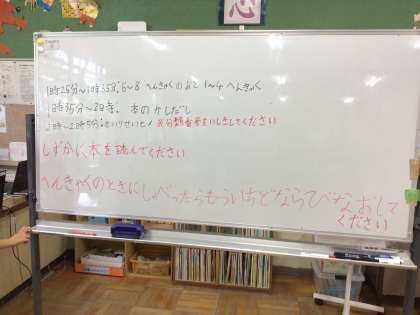 1時25分〜1時35分:6〜8 へんきゃくのあと 1〜4 へんきゃく
1時35分〜2時: 本のかしだし
2時〜2時5分:せいりせいとん ※分類番号をいしきしてください
しずかに本を読んでください
へんきゃくのときにしゃべったらもういちどならびなおして
ください